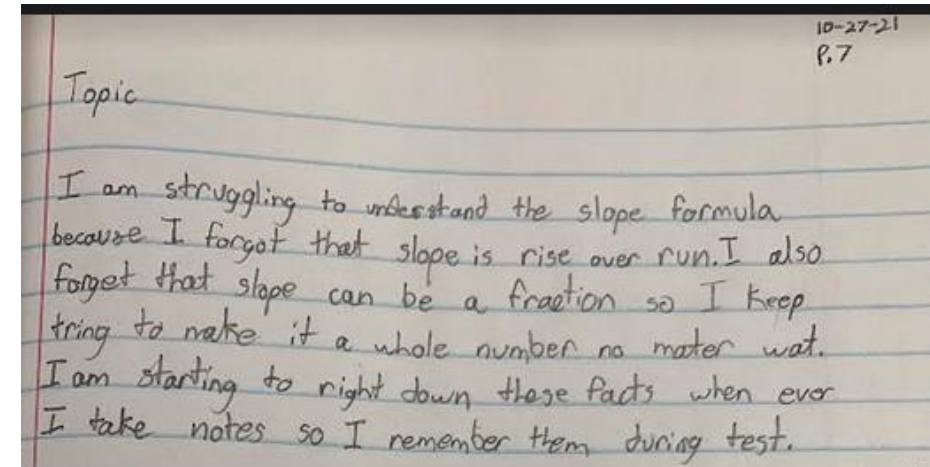 10-27-21
P.7
Topic
I am struggling to understand the slope formula
because I forgot that slope is rise over run. I also
forget that slope can be a fraction so I keep
tring to make it a whole number no mater wat.
I am starting to right down these facts when ever
I take notes so I remember them during test.